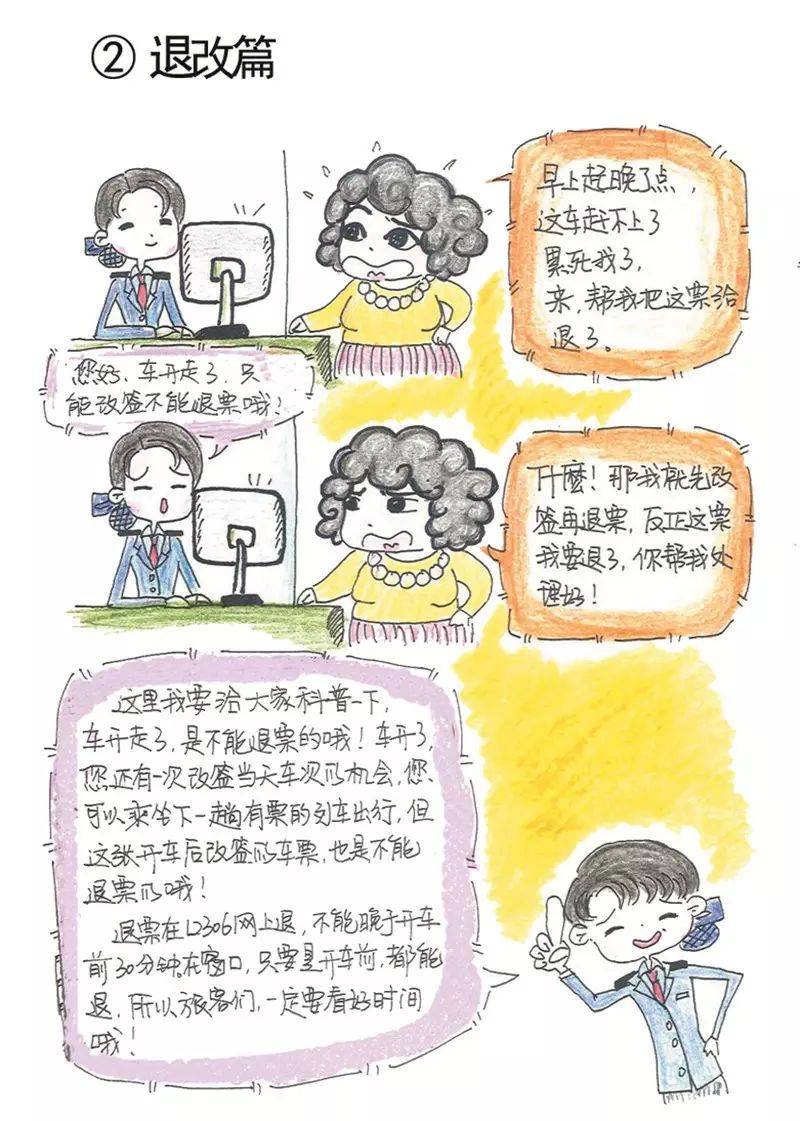 ② 退改篇
早上起晚了点，
这车赶不上了
累死我了，
来，帮我把这票给
退了。
您好，车开走了，只
能改签不能退票哦！
什麼！那我就先改
签再退票，反正这票
我要退了，你帮我处
理好！
这里我要给大家科普一下，
车开走了，是不能退票的哦！车开了，
您还有一次改签当天车次的机会，您
可以乘坐下一趟有票的列车出行，但
这张开车后改签的车票，也是不能
退票的哦！
退票在12306网上退，不能晚于开车
前30分钟，在窗口，只要是开车前，都能
退，所以旅客们，一定要看好时间
哦！